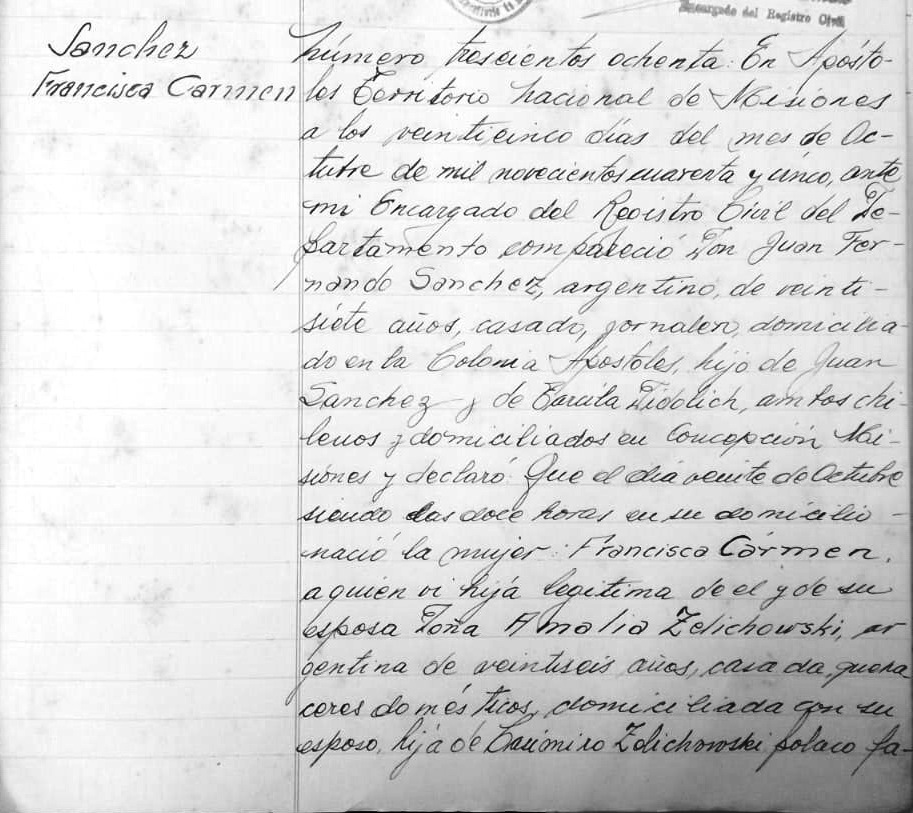 Encargado del Registro Civil
Sanchez
Francisca Carmen
Número trescientos ochenta: En Aposto-
les Territorio Nacional de Misiones
a los veinticinco días del mes de Oc-
tubre de mil novecientos cuarenta y cinco, ante
mi Encargado del Registro Civil del De-
partamento compareció Don Juan Fer-
nando Sanchez, argentino, de veinti-
siete años, casado, jornalero, domicilia-
do en la Colonia Apostoles, hijo de Juan
Sanchez y de Tidolich, ambos chi-
lenos y domiciliados en Concepción Mi-
siones y declaró: Que el día veinte de Octubre
siendo las doce horas en su domicilio
nació la mujer: Francisca Cármen,
a quien vi hija legitima de el y de su
esposa Doña Amalia Zelichowski, ar
gentina de veintiseis años, casada, queha
ceres domésticos, domiciliada con su
esposo, hija de Casimiro Zelichowski polaco fa-